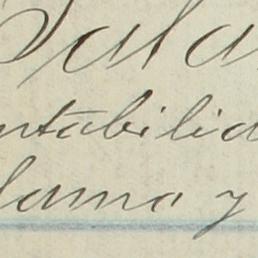 Sala
ntabilid
lamo y